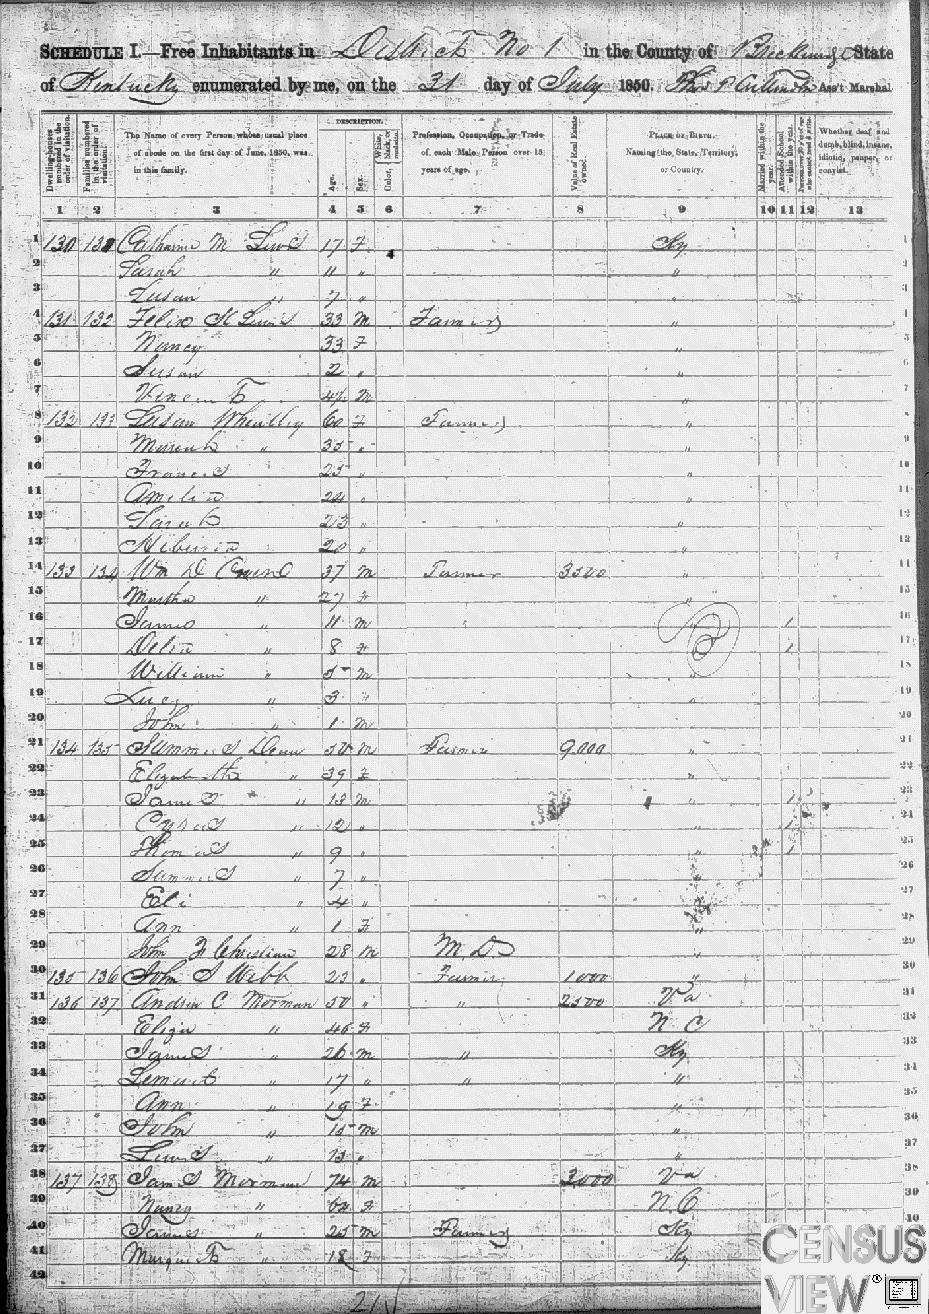 SCHEDULE I.—Free Inhabitants in District No 1 in the County of State
of Kentucky enumerated by me, on the 31 day of July 1850. Ass't Marshal
Dwelling-houses numbered in the order of visitation.
Families numbered in the order of visitation.
The Name of every Person whose usual place of abode on the first day of June, 1850, was in this family.
DESCRIPTION.
Age.
Sex.
Color, White, black, or mulatto.
Profession, Occupation, or Trade of each Male Person over 15 years of age.
Value of Real Estate owned.
PLACE OF BIRTH. Naming the State, Territory, or Country.
Married within the year.
Attended School within the year.
Persons over 20 y'rs of age who cannot read & write.
Whether deaf and dumb, blind, insane, idiotic, pauper, or convict.
1 2 3 4 5 6 7 8 9 10 11 12 13
1 130 Catharine M Lewis 17 F Ky 1
2 Sarah " 11 " " 2
3 Susan " 7 " " 3
4 131 132 Felix Lewis 33 M Farmer " 4
5 Nancy 33 F " 5
6 Susan 2 " " 6
7 M " 7
8 132 133 Susan Wheatley 60 F Farmer " 8
9 " 35 " " 9
10 Frances 25 " " 10
11 Amelia 24 " " 11
12 Sarah 23 " " 12
13 20 " " 13
14 133 134 Wm D 37 M Farmer " 14
15 Martha " 27 F " 15
16 James " 11 M " 1 16
17 Delia " 8 F " 1 17
18 William " 5 M " 18
19 Lucy " 3 F " 19
20 John " 1 M " 20
21 134 135 Summers Dean 50 M Farmer 9,000 " 21
22 Elizabeth " 39 F " 22
23 James " 13 M " 1 23
24 Cyrus " 12 " " 1 24
25 Thomas " 9 " " 1 25
26 Summers " 7 " " 26
27 Eli " 4 " " 27
28 Ann " 1 F " 28
29 John Christian 28 M M.D. " 29
30 135 136 John S Webb 23 " Farmer 1000 " 30
31 136 137 Andrew C Morman 50 " " 2500 Va 31
32 Eliza " 46 F N C 32
33 James " 26 M " Ky 33
34 " 17 " " " 34
35 Ann " 19 F " 35
36 John " 15 M " 36
37 Lewis " 13 " " 37
38 137 138 Morman 74 M 3000 Va 38
39 Nancy " F N.C 39
40 James " 25 M Farmer Ky 40
41 " 18 F Ky
42
CENSUS
VIEW®